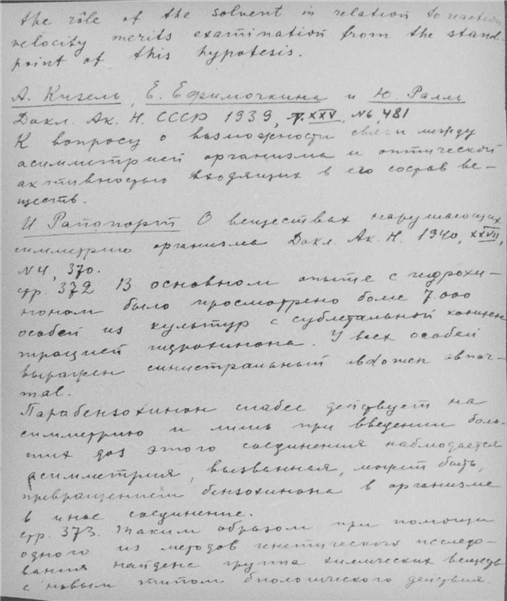 the rôle of the solvent in relation to reaction
velocity merits examination from the stand
point of this hypotesis.
А. Кизель, Е. Ефимочкина и Н Ралль
Докл. Ак. Н. СССР 1939, т. XXV, № 481
К вопросу о возможности связи между
асимметрией организма и оптической
активностью входящих в его состав ве-
ществ.
И. Рапопорт О веществах нарушающих
симметрию организма Докл. Ак. Н. 1940, XXVII,
N 4, 370.
стр. 372 В основном опыте с гидрохи-
ноном было просмотрено более 7000
особей из культур с сублетальной концен
трацией гидрохинона. У всех особей
выражен синистральный
mal.
Парабензохинон слабее действует на
симметрию и лишь при введении боль-
ших доз этого соединения наблюдается
асимметрия, вызванная, может быть,
превращением бензохинона в организме
в иное соединение.
стр. 373. Таким образом при помощи
одного из методов генетического исследо-
вания найдена группа химических веществ
с новым типом биологического действия